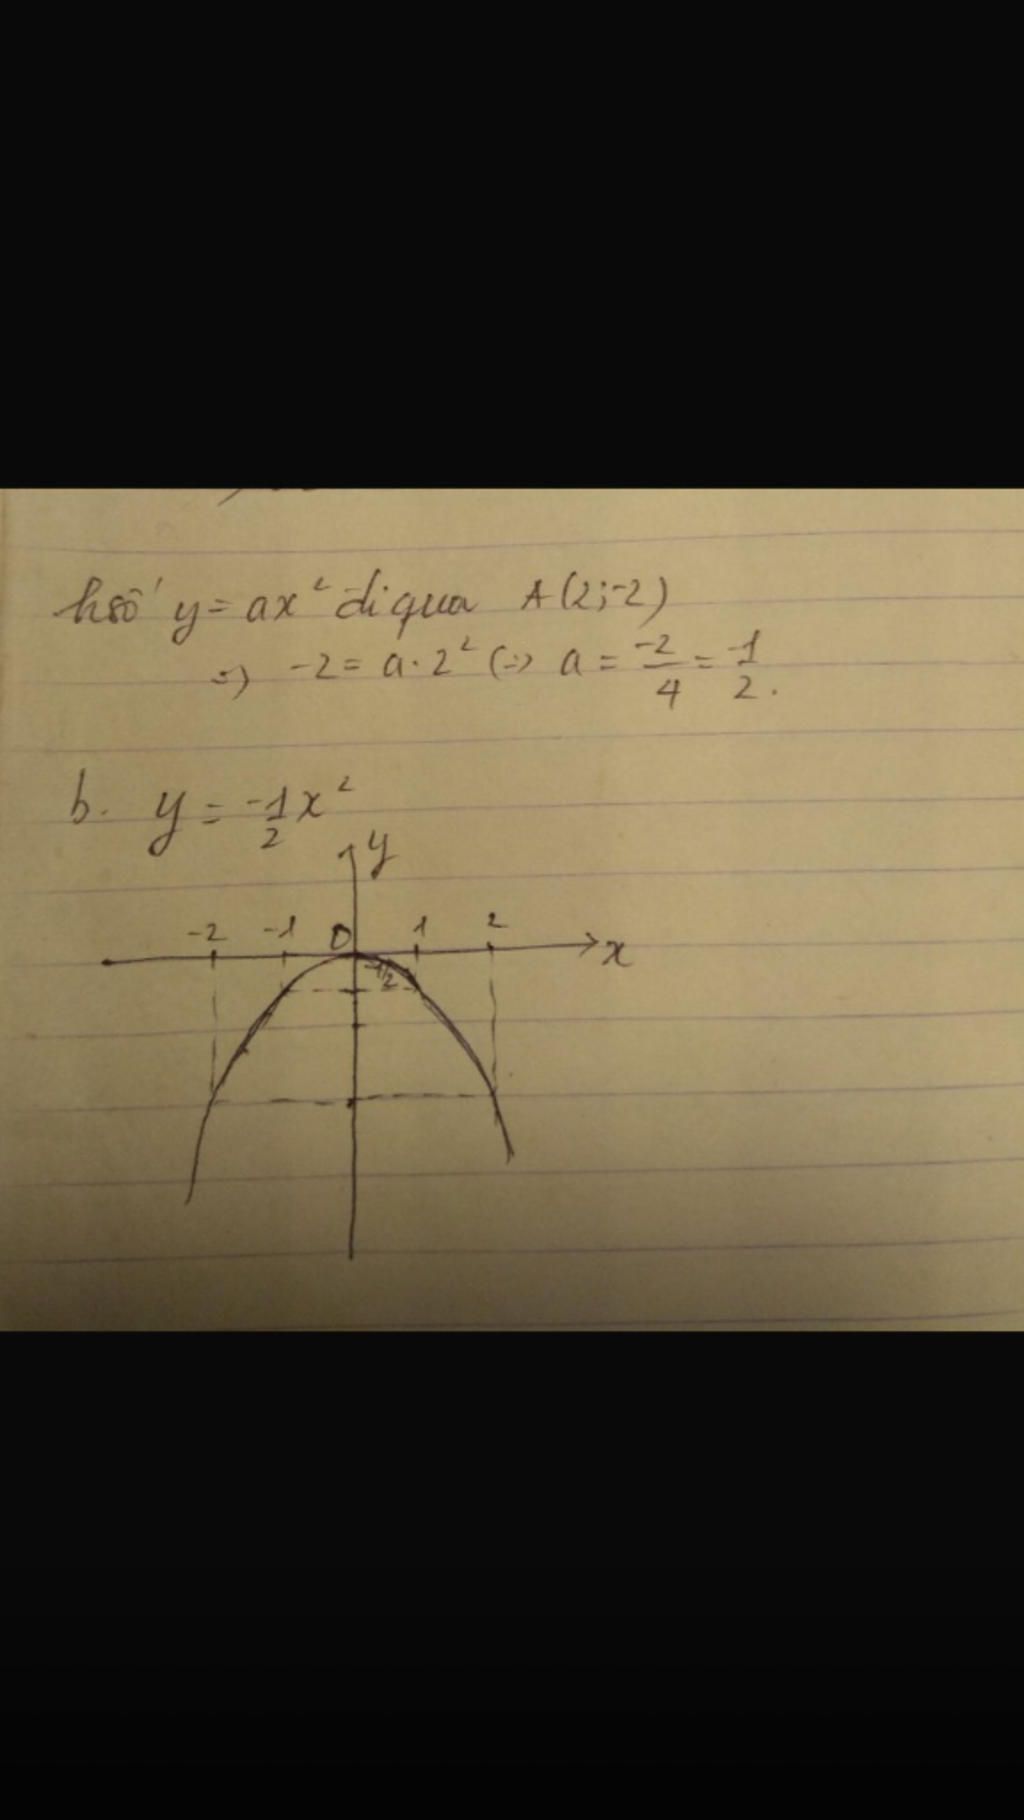 hsố y = ax² đi qua A(2;-2)
=> -2 = a·2² (=> a = -2/4 = -1/2.
b. y = -1/2 x²
y
-2 -1 0 1 2 x
-1/2